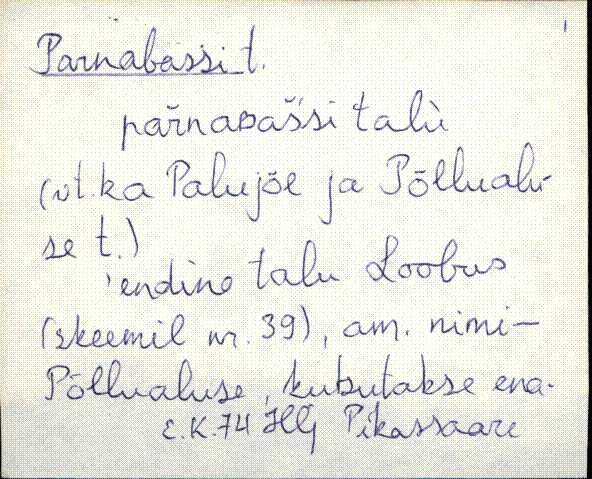 Parnabassi t.
pärnabašsi talu
(vt. ka Palujõe ja Põllualu-
se t.)
'endine talu Loobus
(skeemil nr. 39), am. nimi—
Põllualuse, kutsutakse ena-
E.K. 74 Pikassaare